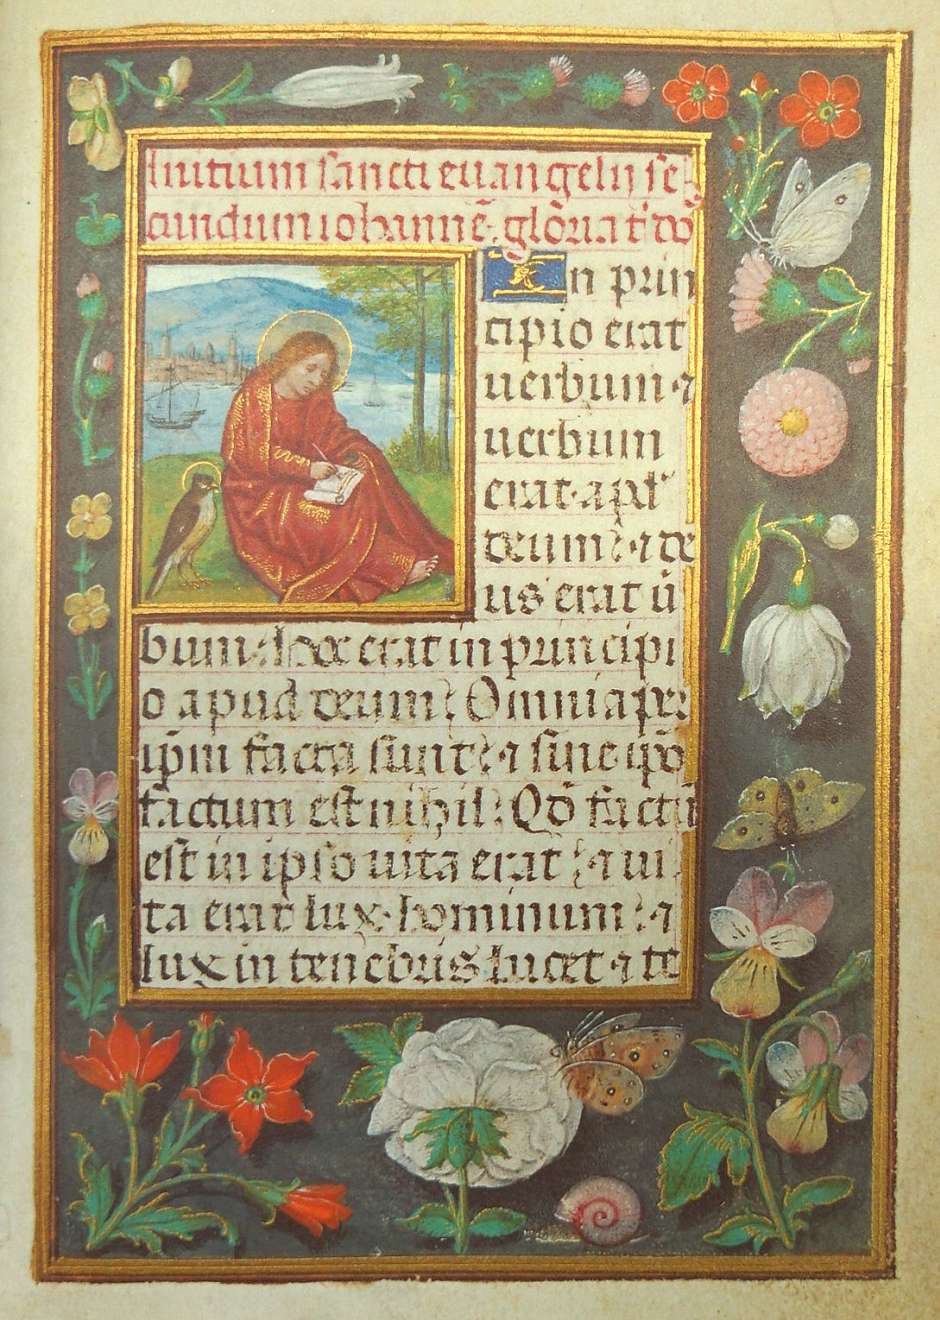 Initium sancti euangelij se
cundum iohannē. glōria t' dō
In prin
cipio erat
uerbum ⁊
uerbum
erat apud
deum: ⁊ de
us erat ū
bum. hoc erat in principi
o apud deum: Omnia per
ip̄m facta sunt: ⁊ sine ip̄o
factum est nihil: Qđ factū
est in ipso uita erat: ⁊ ui
ta erat lux hominum: ⁊
lux in tenebris lucet ⁊ te